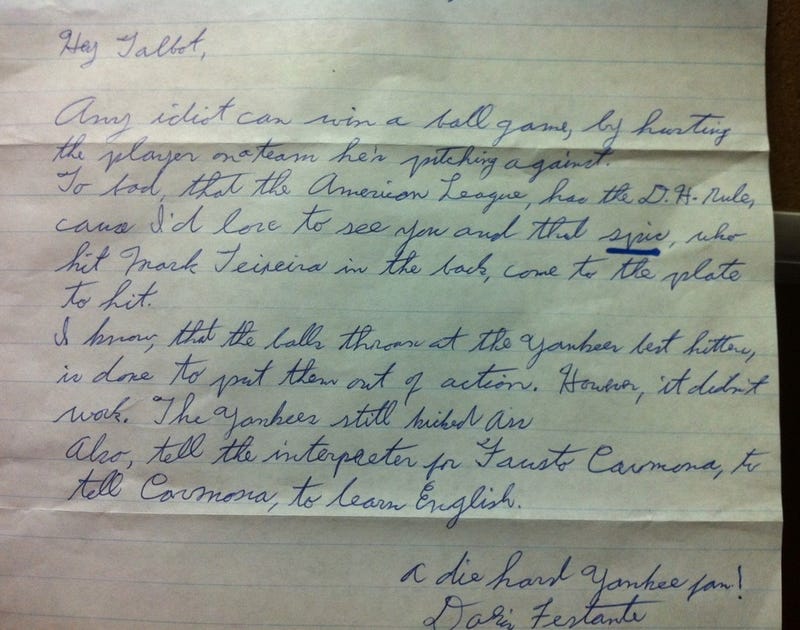 Hey Talbot,
Any idiot can win a ball game, by hurting
the player on a team he's pitching against.
To bad, that the American League, has the D.H. Rule,
cause I'd love to see you and that spic, who
hit Mark Teixeira in the back, come to the plate
to hit.
I know, that the balls thrown at the Yankees best hitters,
is done to put them out of action. However, it didn't
work. The Yankees still kicked Ass
Also, tell the interpreter for Fausto Carmona, to
tell Carmona, to learn English.
a die hard Yankee fan!
Festante